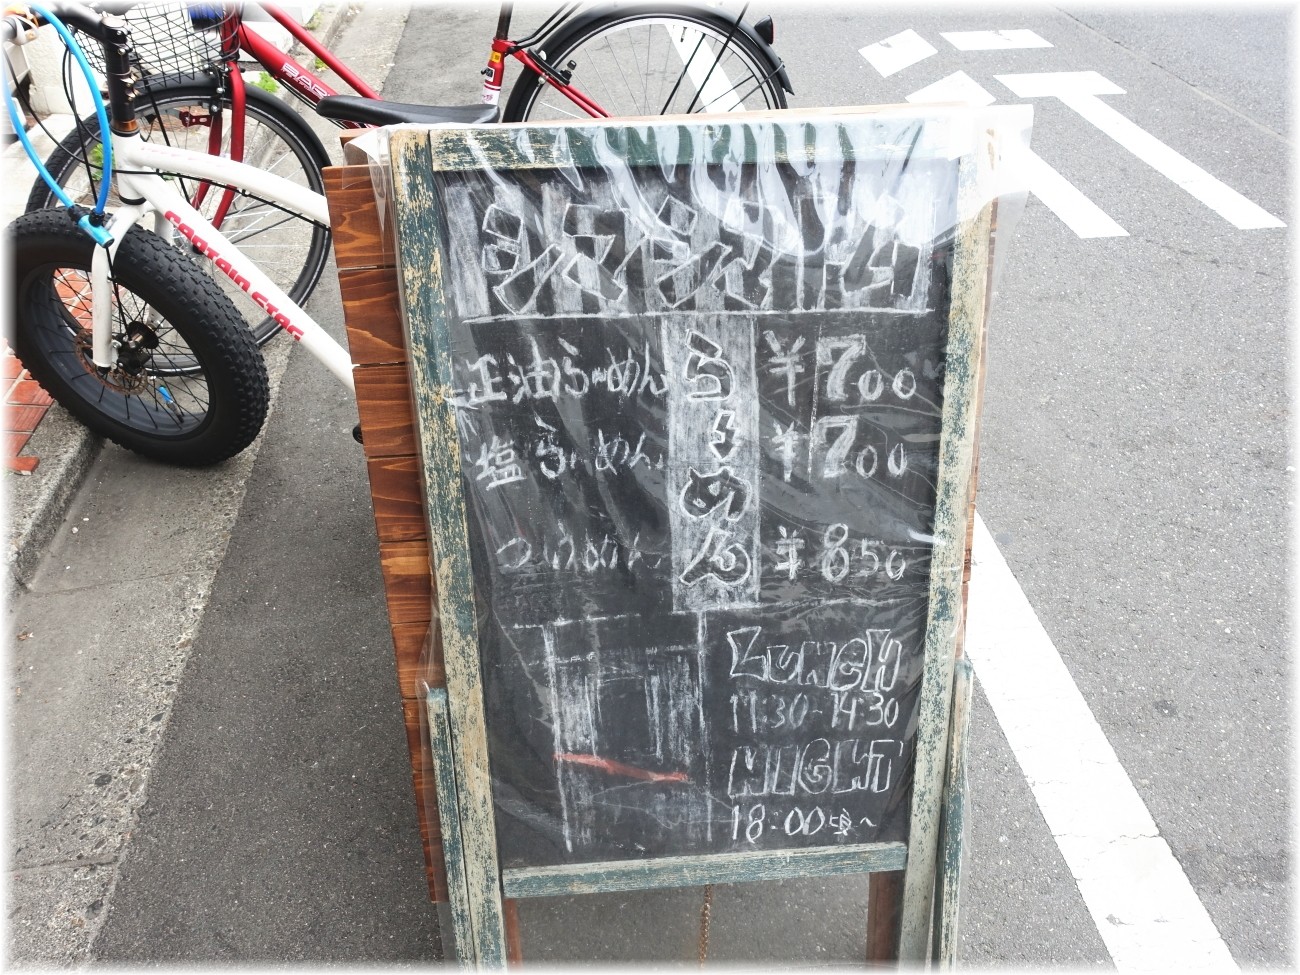 BAA
CAPTAIN STAG
シマシマトム
らーめん
正油らーめん ¥700
塩らーめん ¥700
つけめん ¥850
LUNCH
11:30-14:30
NIGHT
18:00頃~